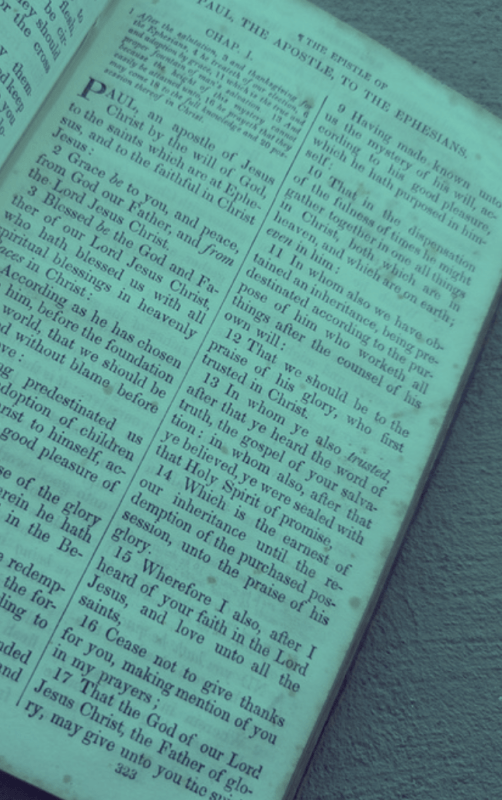 ¶ THE EPISTLE OF
PAUL, THE APOSTLE, TO THE EPHESIANS.
CHAP. I.
1 After the salutation, 3 and thanksgiving for
PAUL, an apostle of Jesus
Christ by the will of God,
to the saints which are at Ephe-
sus, and to the faithful in Christ
Jesus:
2 Grace be to you, and peace,
from God our Father, and from
the Lord Jesus Christ.
3 Blessed be the God and Fa-
ther of our Lord Jesus Christ,
who hath blessed us with all
spiritual blessings in heavenly
places in Christ:
According as he has chosen
him, before the foundation
world, that we should be
d without blame before
ve:
ng predestinated us
adoption of children
rist to himself, ac-
good pleasure of
se of the glory
erein he hath
in the Be-
redemp-
the for-
ding to
nded
and
9 Having made known un
us the mystery of his will, ac-
cording to his good pleasure,
which he hath purposed in him-
self:
10 That in the dispensation
of the fulness of times he might
gather together in one all things
in Christ, both which are in
heaven, and which are on earth;
even in him:
11 In whom also we have ob-
tained an inheritance, being pre-
destinated according to the pur-
pose of him who worketh all
things after the counsel of his
own will:
12 That we should be to the
praise of his glory, who first
trusted in Christ.
13 In whom ye also trusted,
after that ye heard the word of
truth, the gospel of your salva-
tion: in whom also, after that
ye believed, ye were sealed with
that Holy Spirit of promise,
14 Which is the earnest of
our inheritance until the re-
demption of the purchased pos-
session, unto the praise of his
glory.
15 Wherefore I also, after I
heard of your faith in the Lord
Jesus, and love unto all the
saints,
16 Cease not to give thanks
for you, making mention of you
in my prayers;
17 That the God of our Lord
Jesus Christ, the Father of glo-
ry, may give unto you the
323